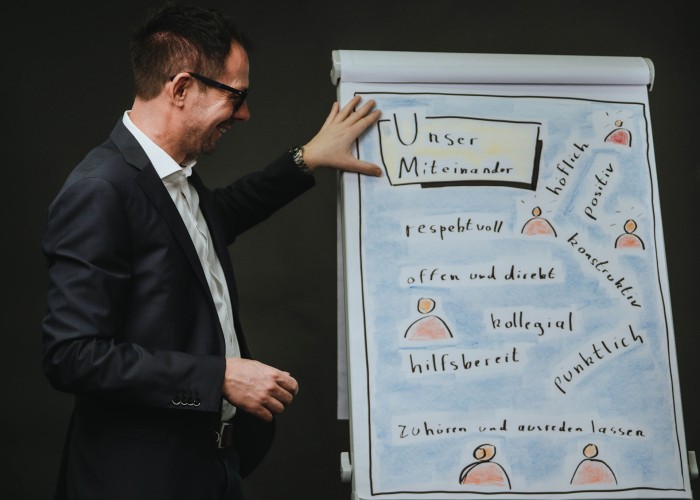 Unser
Miteinander
höflich
positiv
respektvoll
konstruktiv
offen und direkt
kollegial
hilfsbereit
pünktlich
zuhören und ausreden lassen